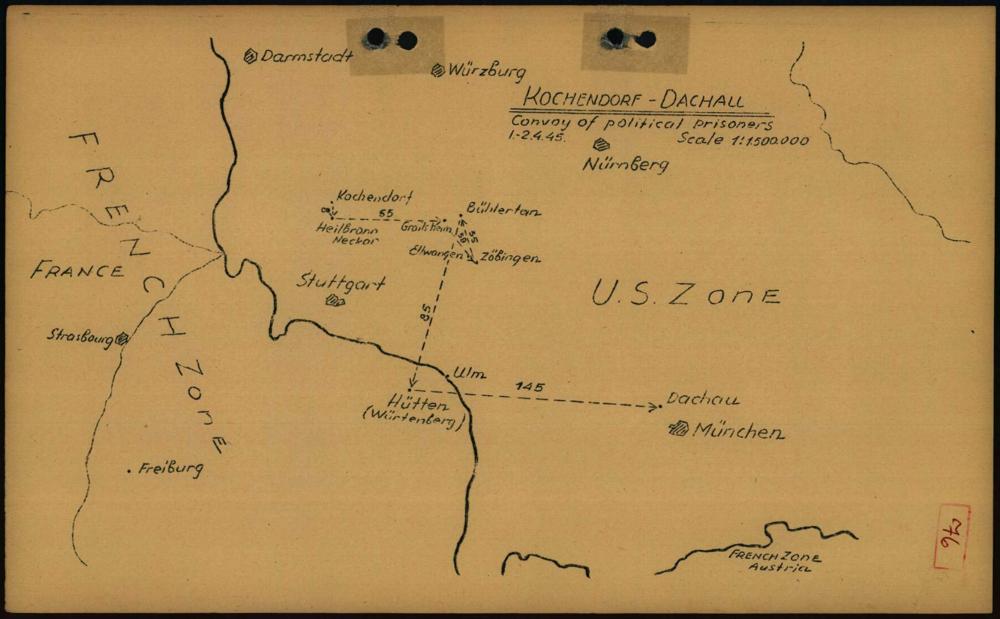 Darmstadt
Würzburg
KOCHENDORF - DACHAU
Convoy of political prisoners
1-2.4.45.
Scale 1:1500.000
Nürnberg
FRENCH ZONE
FRANCE
Kochendorf
8
65
Heilbronn
Neckar
Bühlertan
35
Ellwangen
Zöbingen
Stuttgart
U.S. ZONE
Strasbourg
58
Ulm
145
Hütten
(Würtenberg)
Dachau
München
Freiburg
FRENCH ZONE
Austria